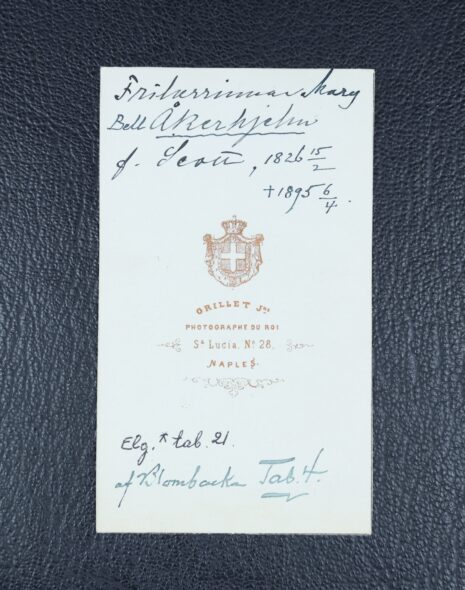 Friherrinnan Mary
Bell Åkerhjelm
f. Scott, 1826 15/2
+1895 6/4.
GRILLET Jne
PHOTOGRAPHE DU ROI
Sa Lucia, No 28.
NAPLES.
Elg. * tab. 21.
af Blombacka Tab. 4.